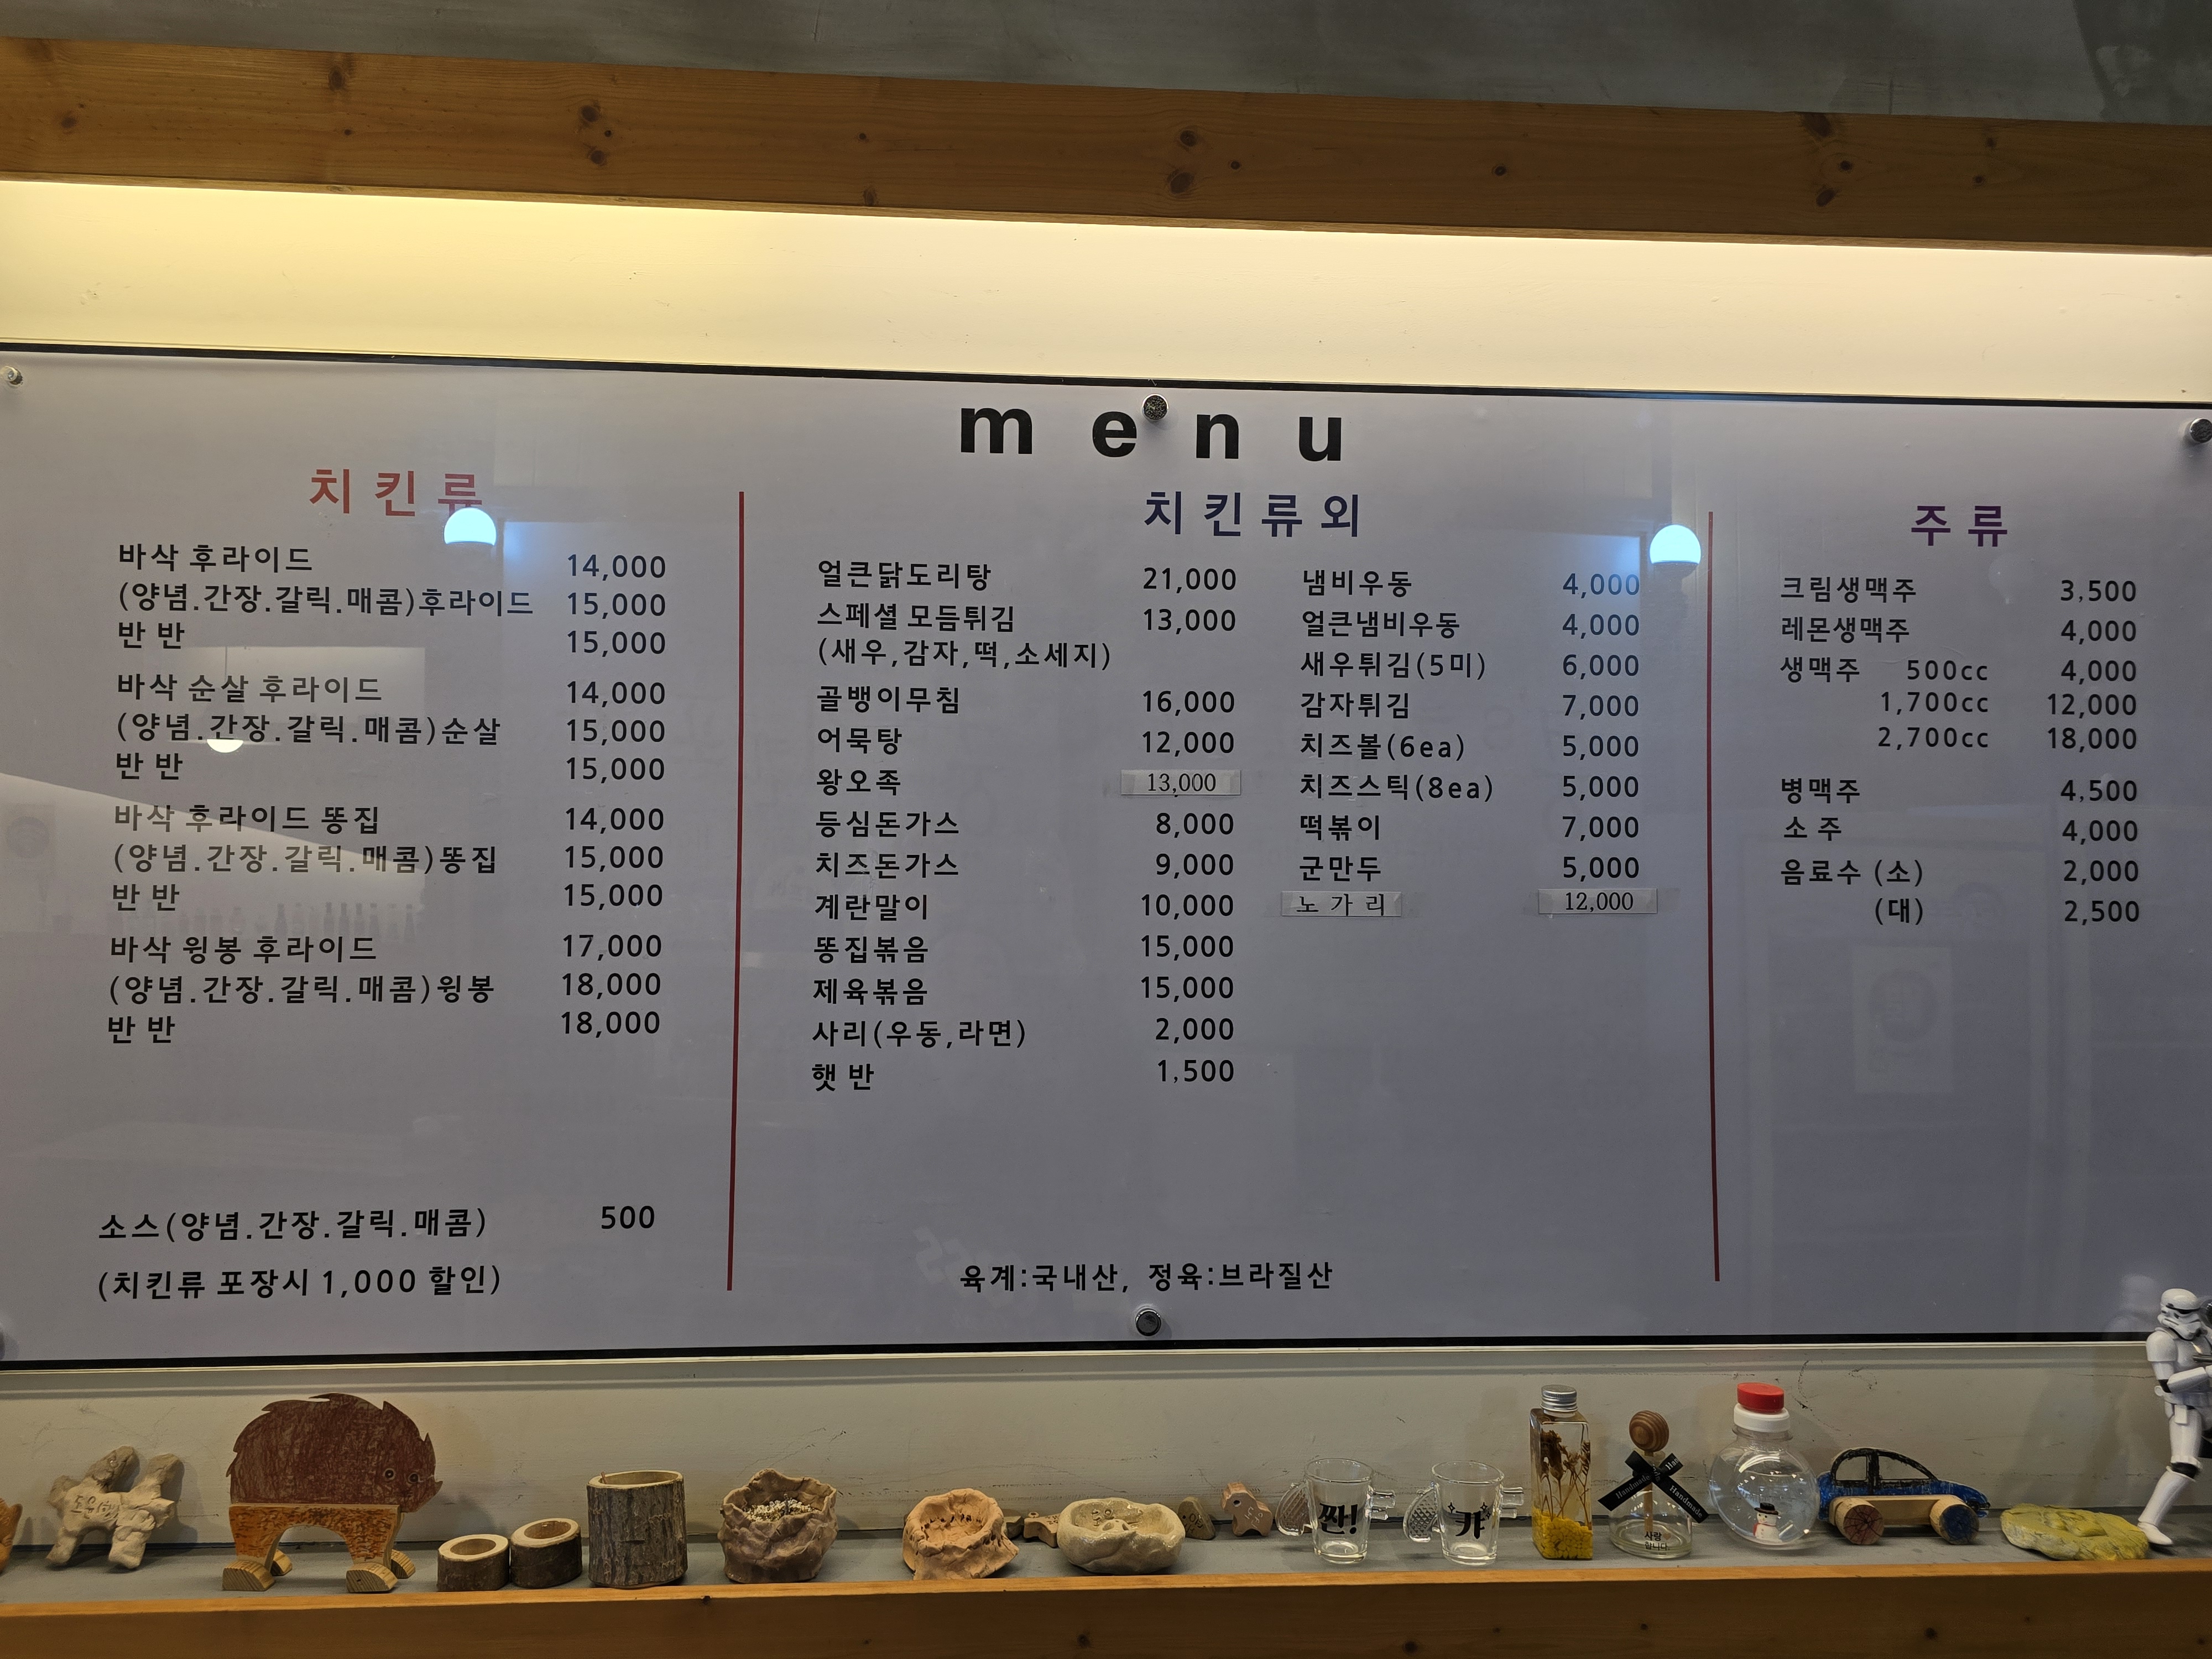 menu
치킨류
바삭 후라이드 14,000
(양념.간장.갈릭.매콤)후라이드 15,000
반 반 15,000
바삭 순살 후라이드 14,000
(양념.간장.갈릭.매콤)순살 15,000
반 반 15,000
바삭 후라이드 똥집 14,000
(양념.간장.갈릭.매콤)똥집 15,000
반 반 15,000
바삭 윙봉 후라이드 17,000
(양념.간장.갈릭.매콤)윙봉 18,000
반 반 18,000
소스(양념.간장.갈릭.매콤) 500
(치킨류 포장시 1,000 할인)
치킨류외
얼큰닭도리탕 21,000
스페셜 모듬튀김 13,000
(새우,감자,떡,소세지)
골뱅이무침 16,000
어묵탕 12,000
왕오족 13,000
등심돈가스 8,000
치즈돈가스 9,000
계란말이 10,000
똥집볶음 15,000
제육볶음 15,000
사리(우동,라면) 2,000
햇 반 1,500
냄비우동 4,000
얼큰냄비우동 4,000
새우튀김(5미) 6,000
감자튀김 7,000
치즈볼(6ea) 5,000
치즈스틱(8ea) 5,000
떡볶이 7,000
군만두 5,000
노 가 리 12,000
육계:국내산, 정육:브라질산
주류
크림생맥주 3,500
레몬생맥주 4,000
생맥주 500cc 4,000
1,700cc 12,000
2,700cc 18,000
병맥주 4,500
소 주 4,000
음료수 (소) 2,000
(대) 2,500
짠!
캬
Handmade
사랑
합니다.